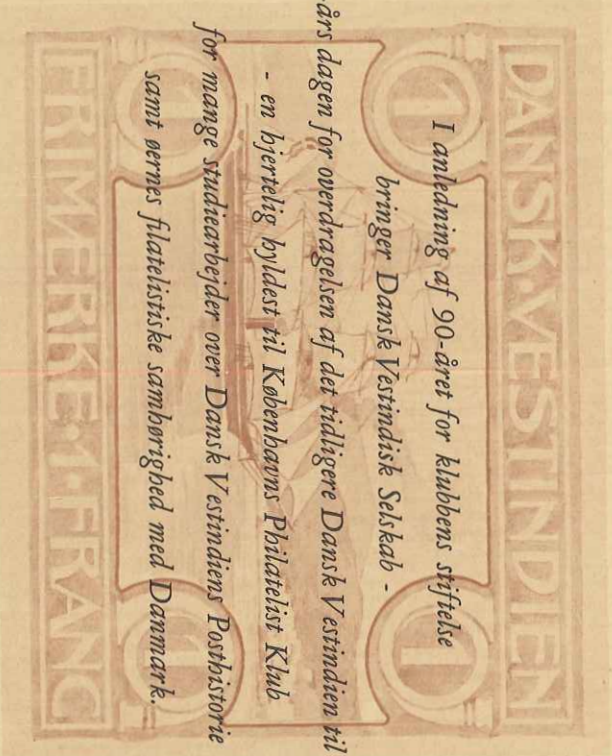 DANSK·VESTINDIEN
1 1
I anledning af 90-året for klubbens stiftelse
bringer Dansk Vestindisk Selskab -
års dagen for overdragelsen af det tidligere Dansk Vestindien til
- en hjertelig hyldest til Københavns Philatelist Klub
for mange studiearbejder over Dansk Vestindiens Posthistorie
samt øernes filatelistiske samhørighed med Danmark.
1 1
FRIMÆRKE·1·FRANC